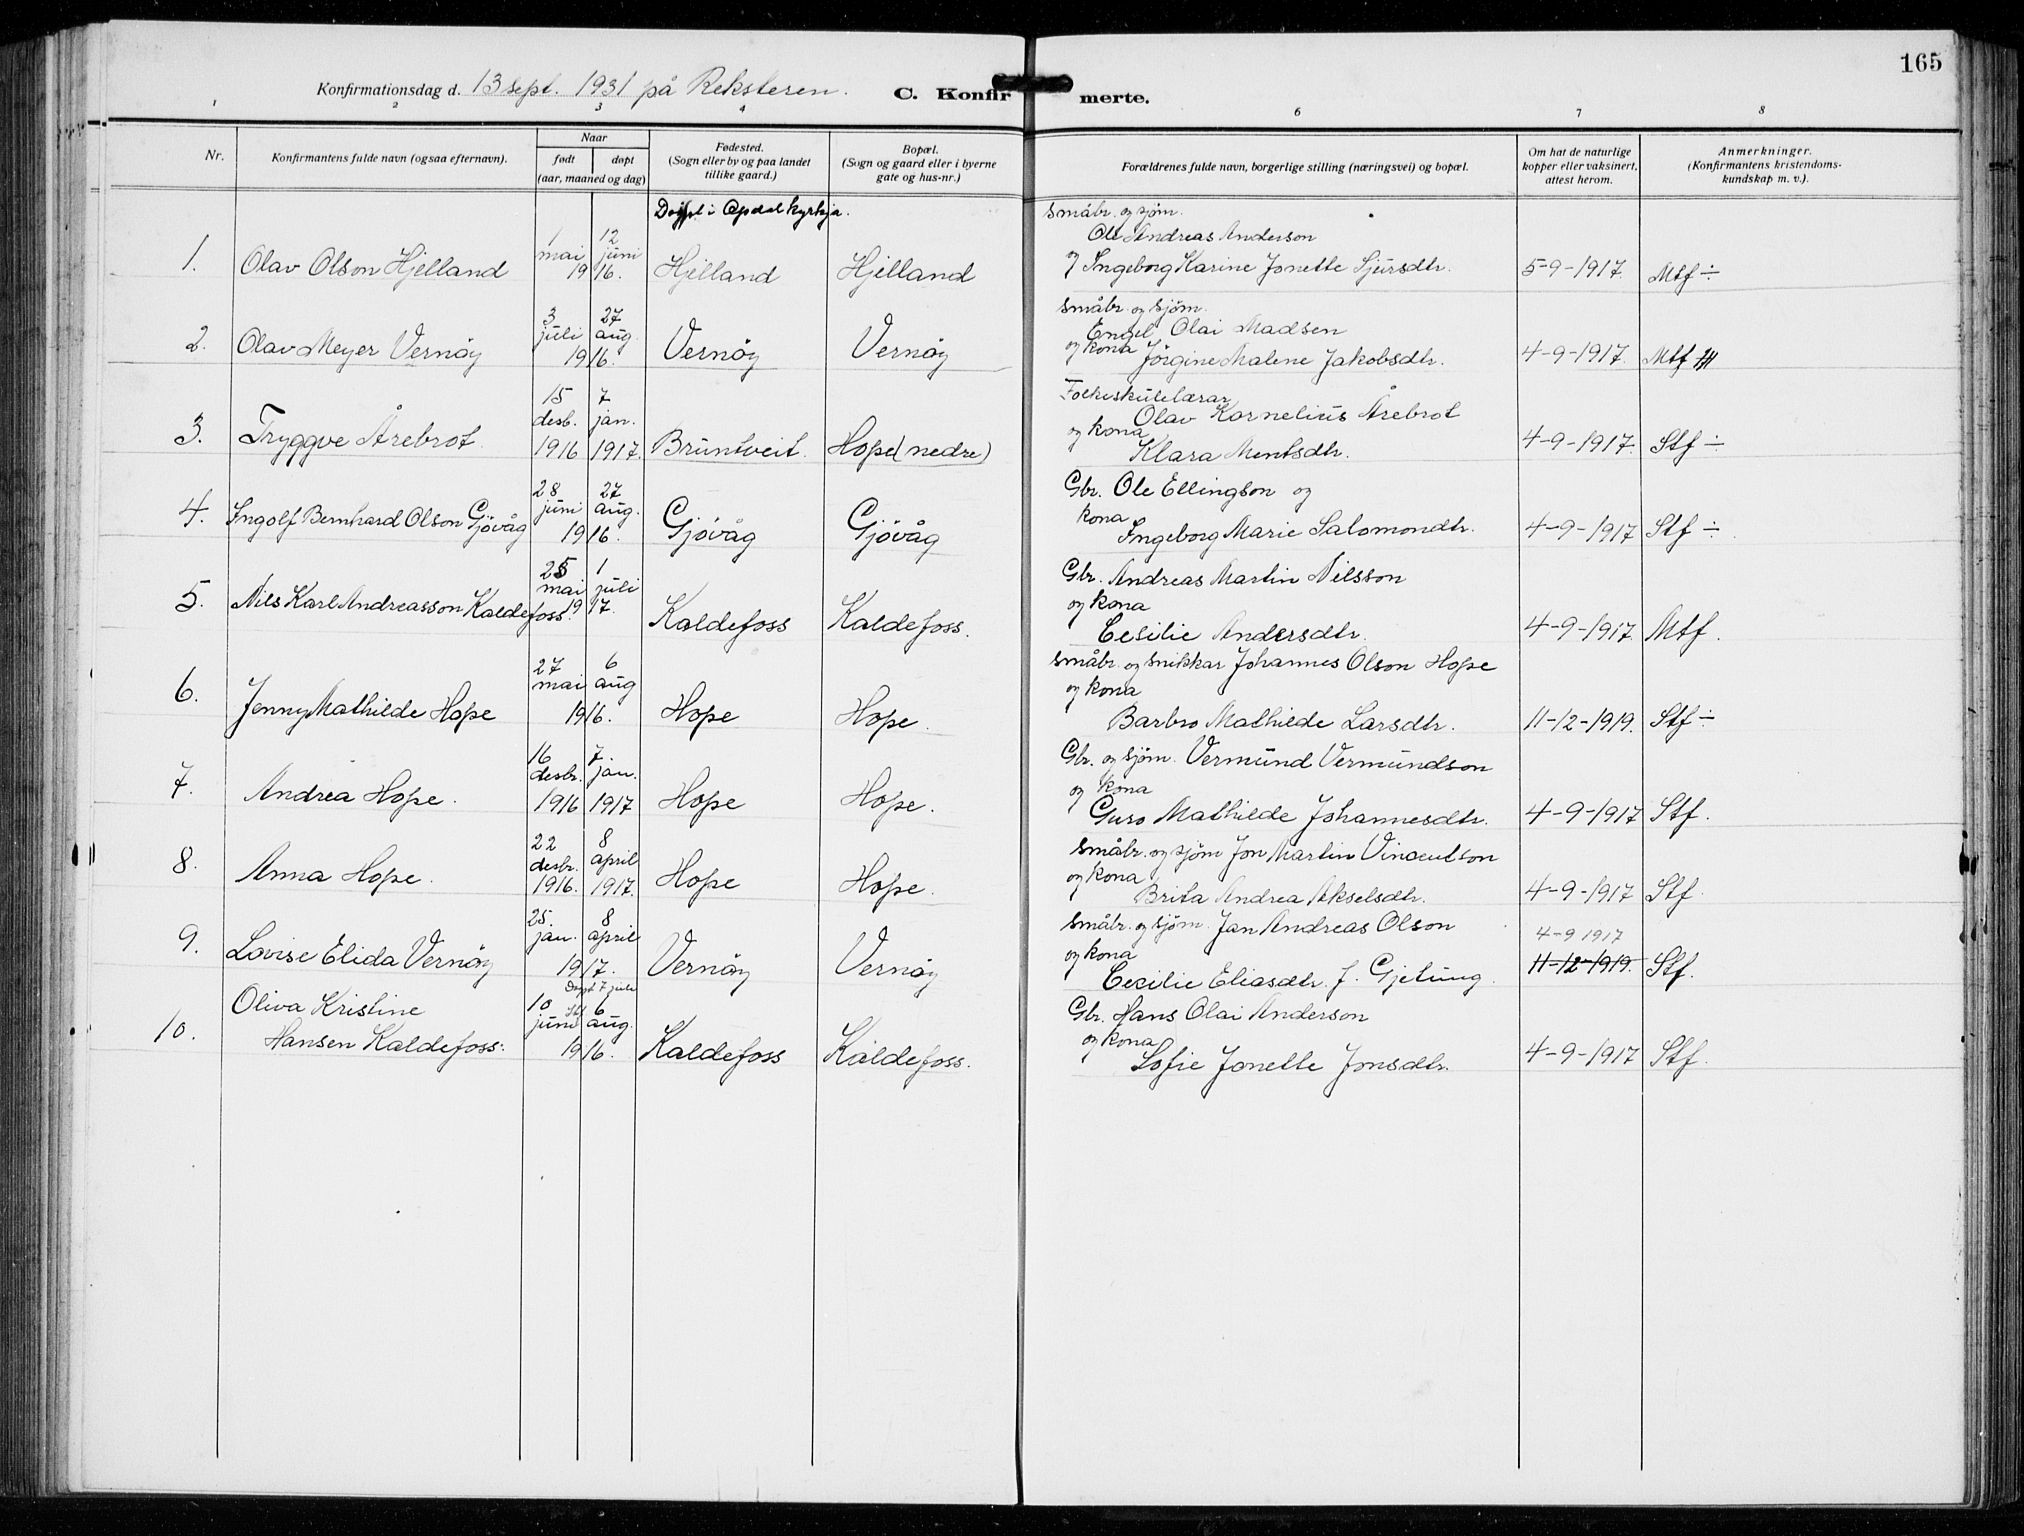 165
Konfirmationsdag d. 13 sept. 1931 på Reksteren.
C. Konfirmerte.
1 2 3 4 6 7 8
Nr.
Konfirmantens fulde navn (ogsaa efternavn).
Naar
født døpt
(aar, maaned og dag)
Fødested.
(Sogn eller by og paa landet
tillike gaard.)
Bopæl.
(Sogn og gaard eller i byerne
gate og hus-nr.)
Forældrenes fulde navn, borgerlige stilling (næringsvei) og bopæl.
Om hat de naturlige
kopper eller vaksinert,
attest herom.
Anmerkninger.
(Konfirmantens kristendoms-
kundskap m. v.).
Døypt i Opdal kyrkja. småbr. og sjøm.
1 mai 12 juni Ole Andreas Anderson
1. Olav Olson Hjelland 1916. Hjelland Hjelland og Ingeborg Karine Jonette Sjursdtr. 5-9-1917. Mtf ÷
småbr. og sjøm.
3 juli 27 aug. Engel Olai Madsen
2. Olav Meyer Vernøy 1916. Vernøy Vernøy og kona Jørgine Malene Jakobsdtr. 4-9-1917. Mtf
15 desb. 7 jan. Folkeskulelærar
Olav Kornelius Årebrot
3. Tryggve Årebrot 1916 1917. Bruntveit. Hope (nedre) og kona Klara Mentsdtr. 4-9-1917. Stf ÷
28 juni 27 aug. Gbr. Ole Ellingson og
4. Ingolf Bernhard Olson Gjøvåg 1916. Gjøvåg Gjøvåg kona Ingeborg Marie Salomondtr. 4-9-1917 Stf ÷
25 mai 1 juli Gbr. Andreas Martin Nilsson
5. Nils Karl Andreasson Kaldefoss. 1917. Kaldefoss Kaldefoss. og kona
Cesilie Andersdtr. 4-9-1917. Mtf.
27 mai 6 aug småbr. og snikkar Johannes Olson Hope
og kona
6. Jenny Mathilde Hope 1916. Hope Hope. Barbro Mathilde Larsdtr. 11-12-1919. Stf ÷
16 desbr. 7. jan. Gbr. og sjøm. Vermund Vermundson
og kona
7. Andrea Hope. 1916 1917 Hope Hope. Guro Mathilde Johannesdtr. 4-9-1917 Stf.
22 desbr. 8 april småbr. og sjøm Jon Martin Vincentson
8. Anna Hope. 1916. 1917. Hope Hope. og kona Brita Andrea Akselsdtr. 4-9-1917 Stf.
25. jan. 8 april småbr. og sjøm. Jan Andreas Olson 4-9 1917
9. Lovise Elida Vernøy 1917. Vernøy Vernøy og kona Cecilie Eliasdtr. f. Gjetung. 11-12-1919. Stf.
Døypt 7 juli
Oliva Kristine 10 juni 6 aug. Gbr. Hans Olai Anderson
10. Hansen Kaldefoss. 1916. Kaldefoss Kaldefoss. og kona Sofie Jonette Jonsdtr. 4-9-1917 Stf.